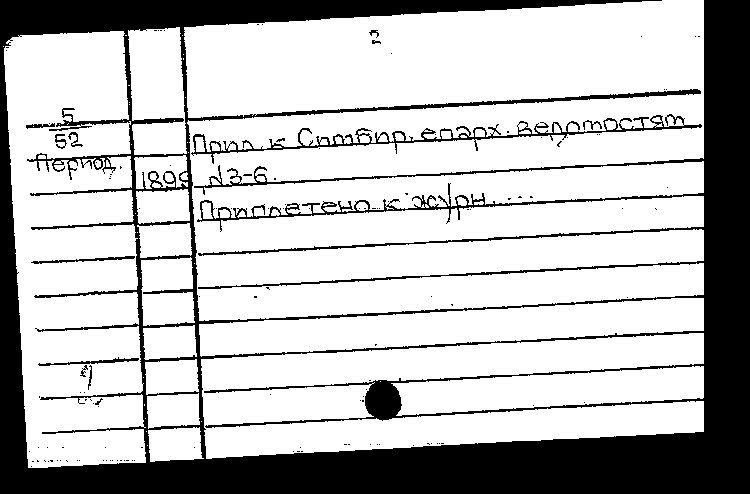 2
5
52
Период.
Прил. к Симбир. епарх. ведомостям
1899, №3-6.
Приплетено к журн. ....